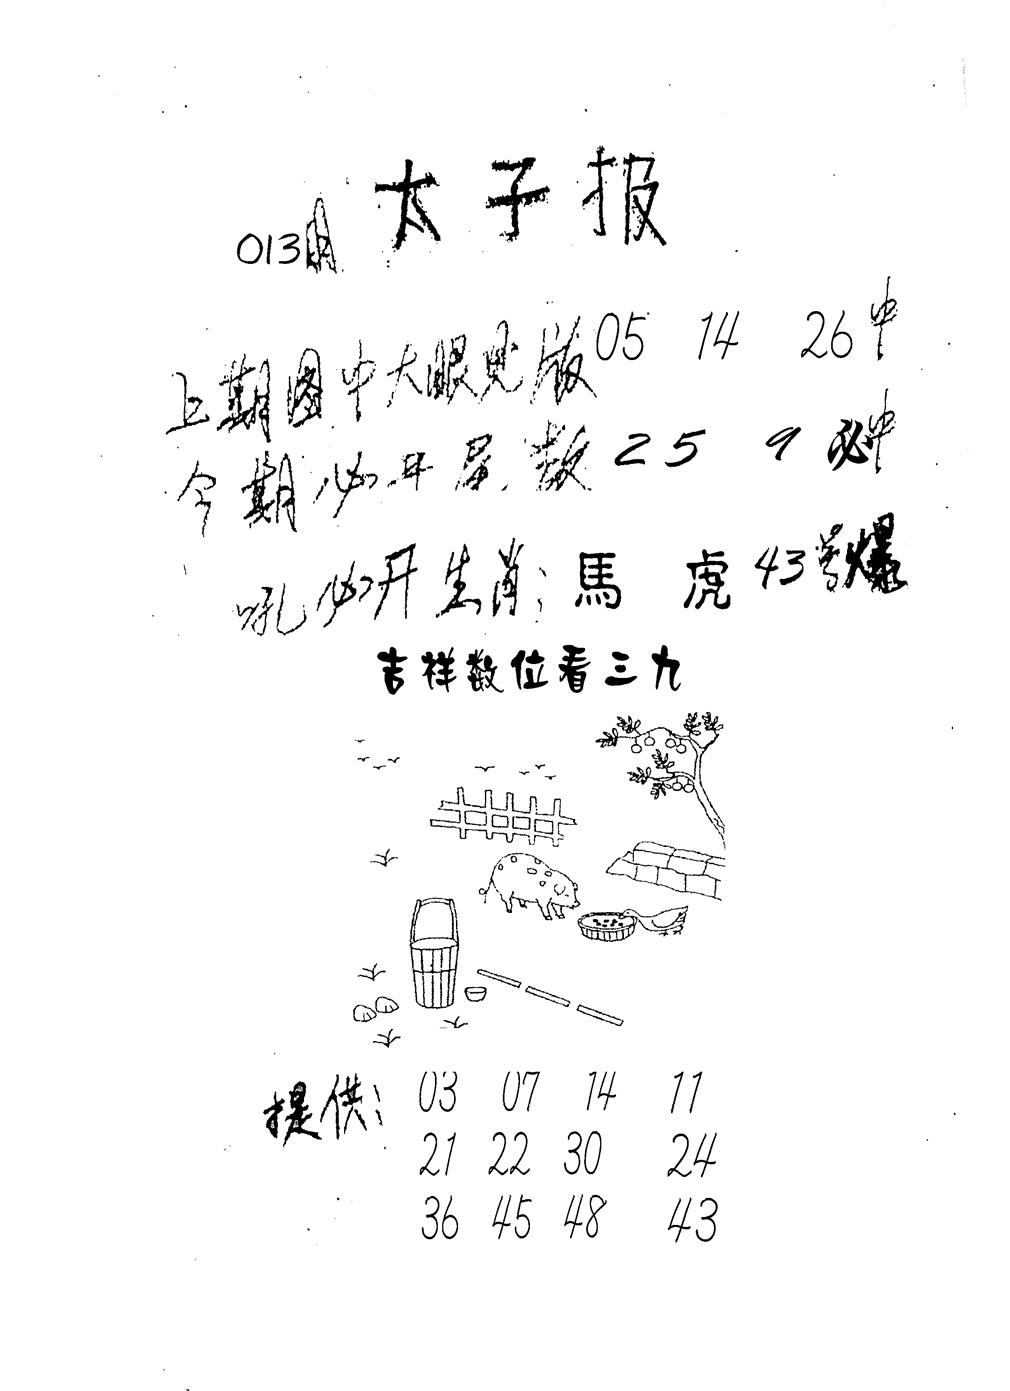 太子报
013期
上期图中大眼见版 05 14 26 中
今期必开尾数 2 5 9 必中
吼必开生肖：馬 虎 43号爆
吉祥数位看三九
提供：03 07 14 11
21 22 30 24
36 45 48 43